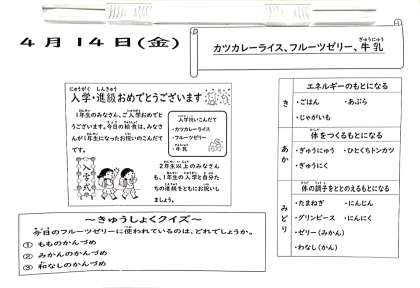 4月14日(金)
カツカレーライス、フルーツゼリー、牛乳
ぎゅうにゅう
にゅうがく しんきゅう
入学・進級おめでとうございます
1年生のみなさん、ご入学おめでと
うございます。今日の給食は、みなさ
んが1年生になったお祝いのこんだて
です。
入学祝いこんだて
・カツカレーライス
・フルーツゼリー
・牛乳
入学式
2年生以上のみなさん
も、1年生の入学と自分た
ちの進級をともにお祝いし
ましょう。
~きゅうしょくクイズ~
今日のフルーツゼリーに使われているのは、どれでしょうか。
① もものかんづめ
② みかんのかんづめ
③ 和なしのかんづめ
き
エネルギーのもとになる
・ごはん ・あぶら
・じゃがいも
あか
体をつくるもとになる
・ぎゅうにゅう ・ひとくちトンカツ
・ぎゅうにく
みどり
体の調子をととのえるもとになる
・たまねぎ ・にんじん
・グリンピース ・にんにく
・ゼリー(みかん)
・わなし(かん)